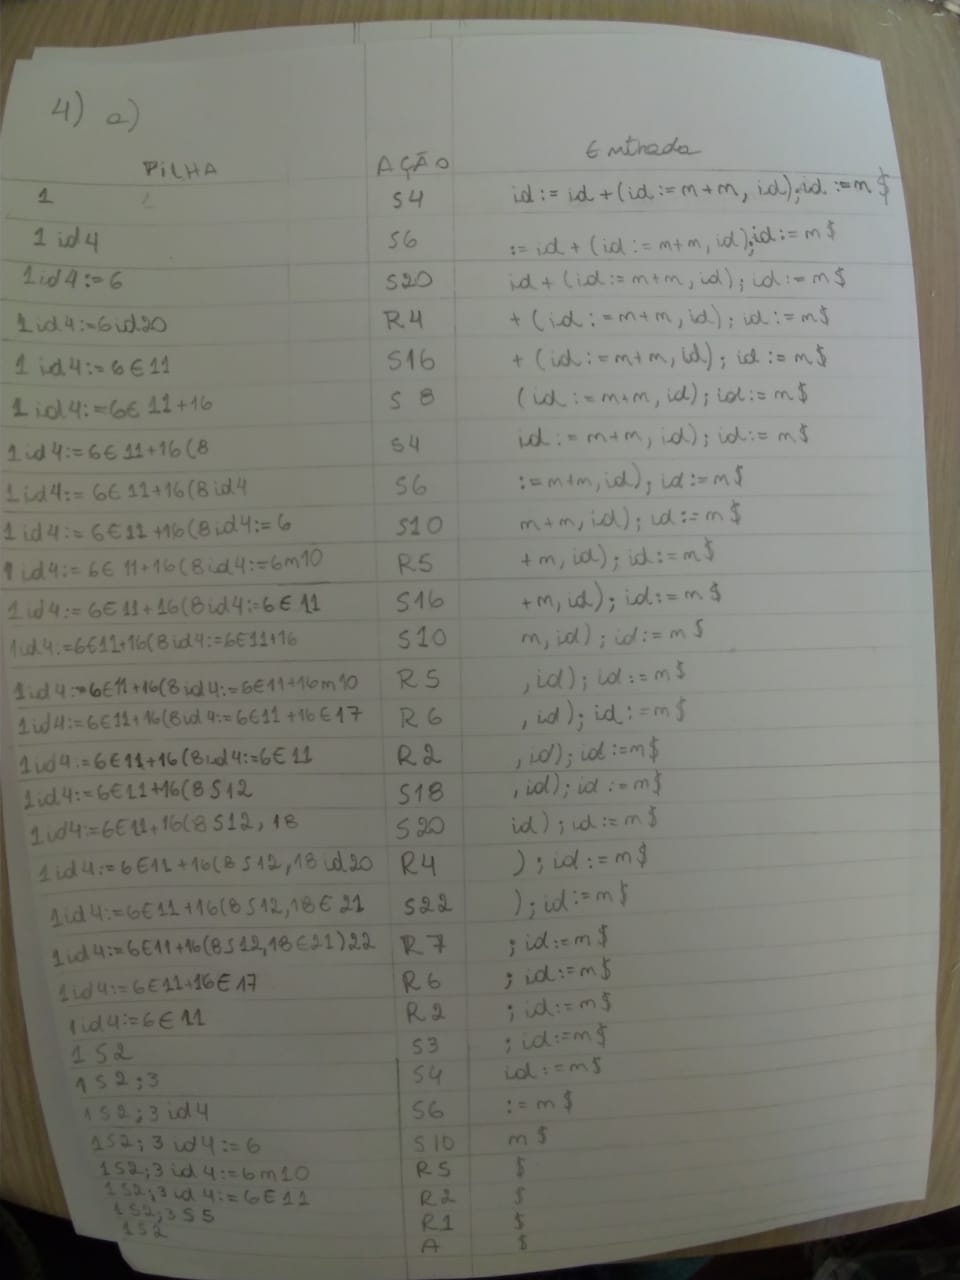 4) a)
PILHA AÇÃO Entrada
1 S4 id:= id + (id := m+m, id);id := m $
1 id 4 S6 := id + (id := m+m, id);id := m $
1 id 4 := 6 S20 id + (id := m+m, id); id := m $
1 id 4:=6id20 R4 + (id := m+m, id); id := m $
1 id 4:= 6 E 11 S16 + (id := m+m, id); id := m $
1 id 4:=6E 11+16 S 8 (id := m+m, id); id := m $
1 id 4:= 6E 11+16(8 S4 id := m+m, id); id := m $
1 id 4:= 6E 11+16(8 id 4 S6 := m+m, id); id := m $
1 id 4:= 6E 11 +16(8 id 4:= 6 S10 m+m, id); id := m $
1 id 4:= 6E 11+16(8 id 4:=6m10 R5 +m, id); id := m $
1 id 4:= 6E 11+16(8 id 4:=6E 11 S16 +m, id); id := m $
1id4:=6E11+16(8 id 4:=6E11+16 S10 m, id); id := m $
1 id 4:=6E11+16(8 id 4:=6E11+16m10 R5 , id); id := m $
1 id 4:=6E11+16(8 id 4:=6E11 +16E17 R6 , id); id := m $
1 id 4:=6E11+16(8 id 4:=6E 11 R2 , id); id := m $
1 id 4:=6E11+16(8 S12 S18 , id); id := m $
1 id 4:=6E11+16(8 S12, 18 S20 id); id := m $
1 id 4:=6E11+16(8 S12,18 id20 R4 ); id := m $
1 id 4:=6E11+16(8 S12,18E 21 S22 ); id := m $
1 id 4:=6E11+16(8S12,18E21)22 R7 ; id := m $
1 id 4:=6E11+16E17 R6 ; id := m $
1 id 4:=6E 11 R2 ; id := m $
1 S2 S3 ; id := m $
1 S2;3 S4 id := m $
1 S2;3 id 4 S6 := m $
1S2;3 id 4:=6 S10 m $
1S2;3 id 4:=6m10 R5 $
1S2;3 id 4:=6E11 R2 $
1S2;3S5 R1 $
1S2 A $